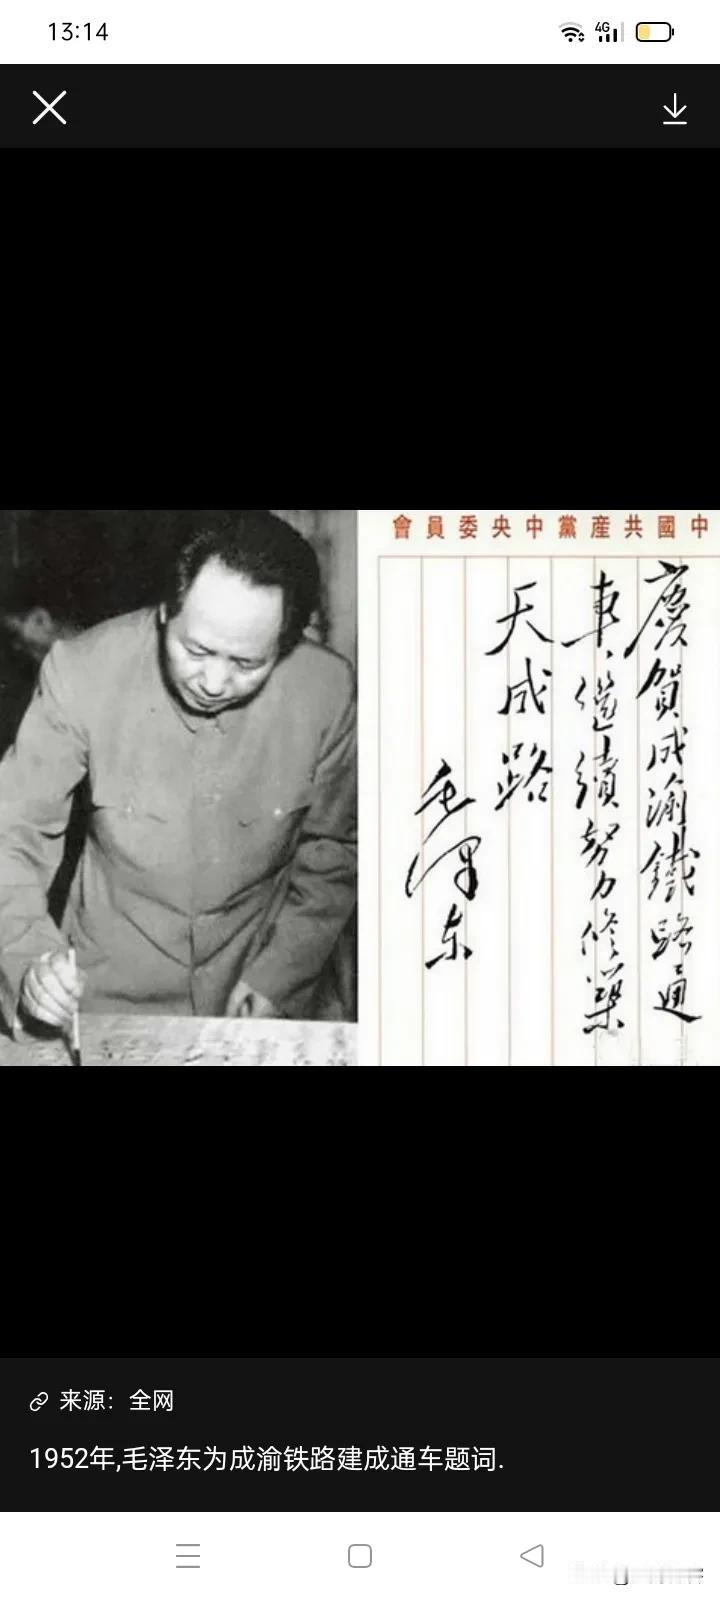 13:14
4G
中國共産黨中央委員會
慶賀成渝鐵路通
車，繼續努力修築
天成路
毛澤东
来源：全网
1952年,毛泽东为成渝铁路建成通车题词.